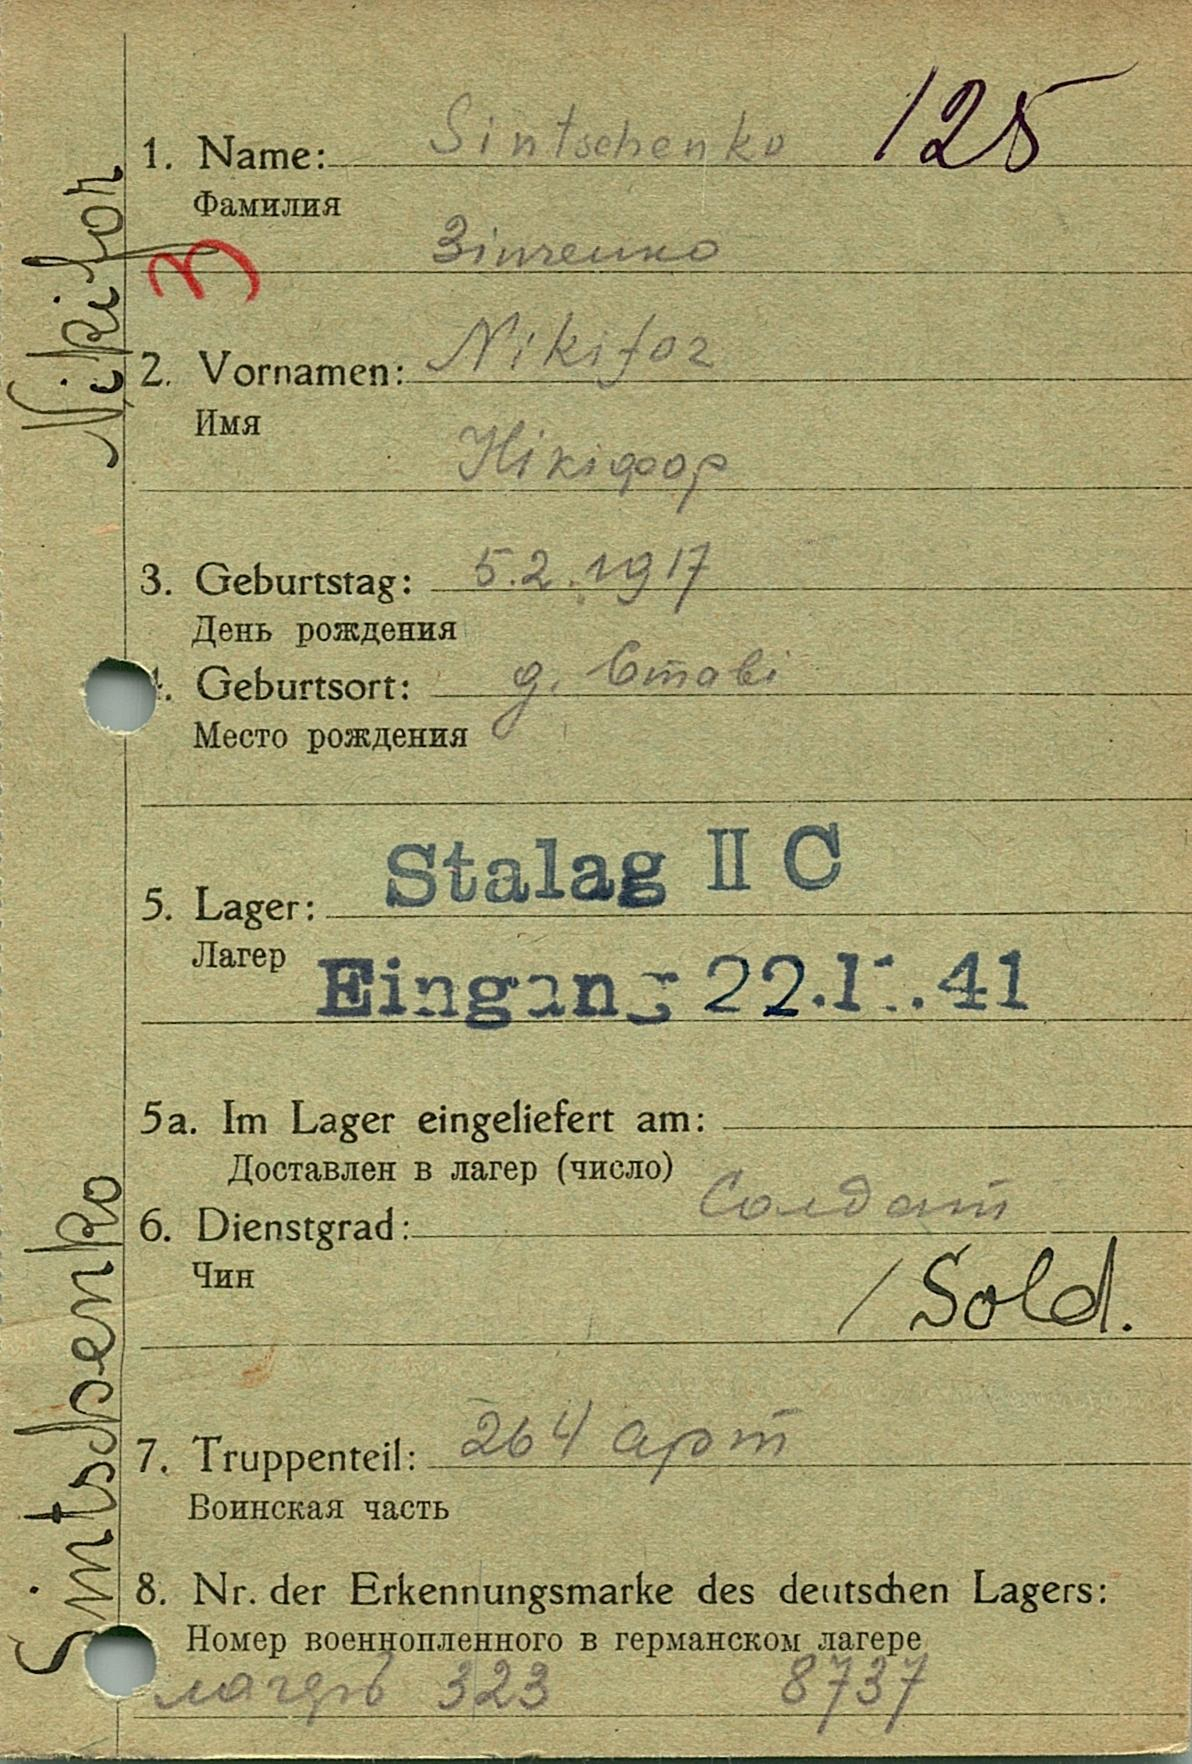 125
1. Name: Sintschenko
Фамилия
Зінченко
З
2. Vornamen: Nikifor
Имя
Нікіфор
3. Geburtstag: 5.2.1917
День рождения
4. Geburtsort: д. Ставі
Место рождения
Stalag II C
5. Lager:
Лагер
Eingang 22.11.41
5a. Im Lager eingeliefert am:
Доставлен в лагер (число)
6. Dienstgrad: Солдат
Чин
/ Sold.
7. Truppenteil: 264 арт
Воинская часть
8. Nr. der Erkennungsmarke des deutschen Lagers:
Номер военнопленного в германском лагере
323 8737
Sintschenko Nikifor